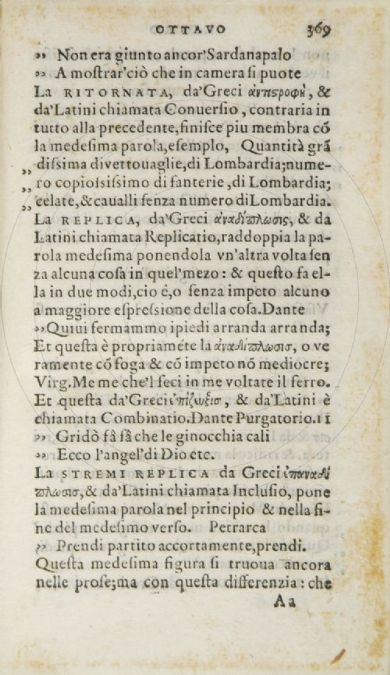 OTTAVO 369
„ Non era giunto ancor'Sardanapalo
„ A mostrar'ciò che in camera si puote
La RITORNATA, da'Greci ἀντιςροφὴ, &
da'Latini chiamata Conuersio, contraria in
tutto alla precedente, finisce piu membra cō
la medesima parola, esemplo, Quantità grā
„ dissima di vettouaglie, di Lombardia; nume-
„ ro copiosissimo di fanterie, di Lombardia;
„ celate, & caualli senza numero di Lombardia.
La REPLICA, da'Greci ἀναδίπλωσις, & da
Latini chiamata Replicatio, raddoppia la pa-
rola medesima ponendola vn'altra volta sen
za alcuna cosa in quel'mezo: & questo fa el-
la in due modi, cio è, o senza impeto alcuno
a maggiore espressione della cosa. Dante
„ Quiui fermammo i piedi arranda arranda;
Et questa è propriamēte la ἀναδίπλωσις, o ve
ramente cō foga & cō impeto nō mediocre;
Virg. Me me che'l feci in me voltate il ferro.
Et questa da'Greci ἐπίζωξις, & da'Latini è
chiamata Combinatio. Dante Purgatorio. 11
„ Gridò fà fà che le ginocchia cali
„ Ecco l'angel'di Dio etc.
La STREMI REPLICA da Greci ἐπαναδί
πλωσις, & da'Latini chiamata Inclusio, pone
la medesima parola nel principio & nella fi-
ne del medesimo verso. Petrarca
„ Prendi partito accortamente, prendi.
Questa medesima figura si truoua ancora
nelle prose; ma con questa differenzia: che
Aa